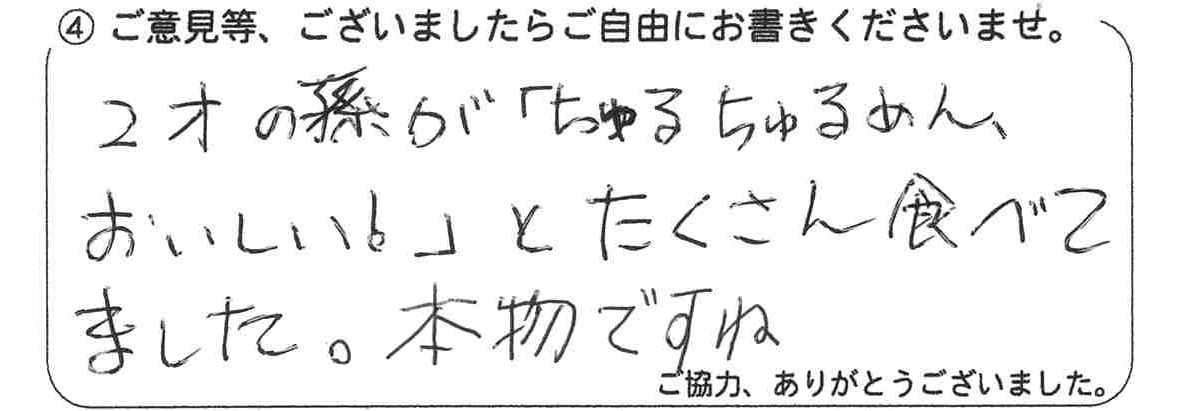 ④ ご意見等、ございましたらご自由にお書きくださいませ。
2才の孫が「ちゅるちゅるめん、
おいしい!」とたくさん食べて
ました。本物ですね
ご協力、ありがとうございました。